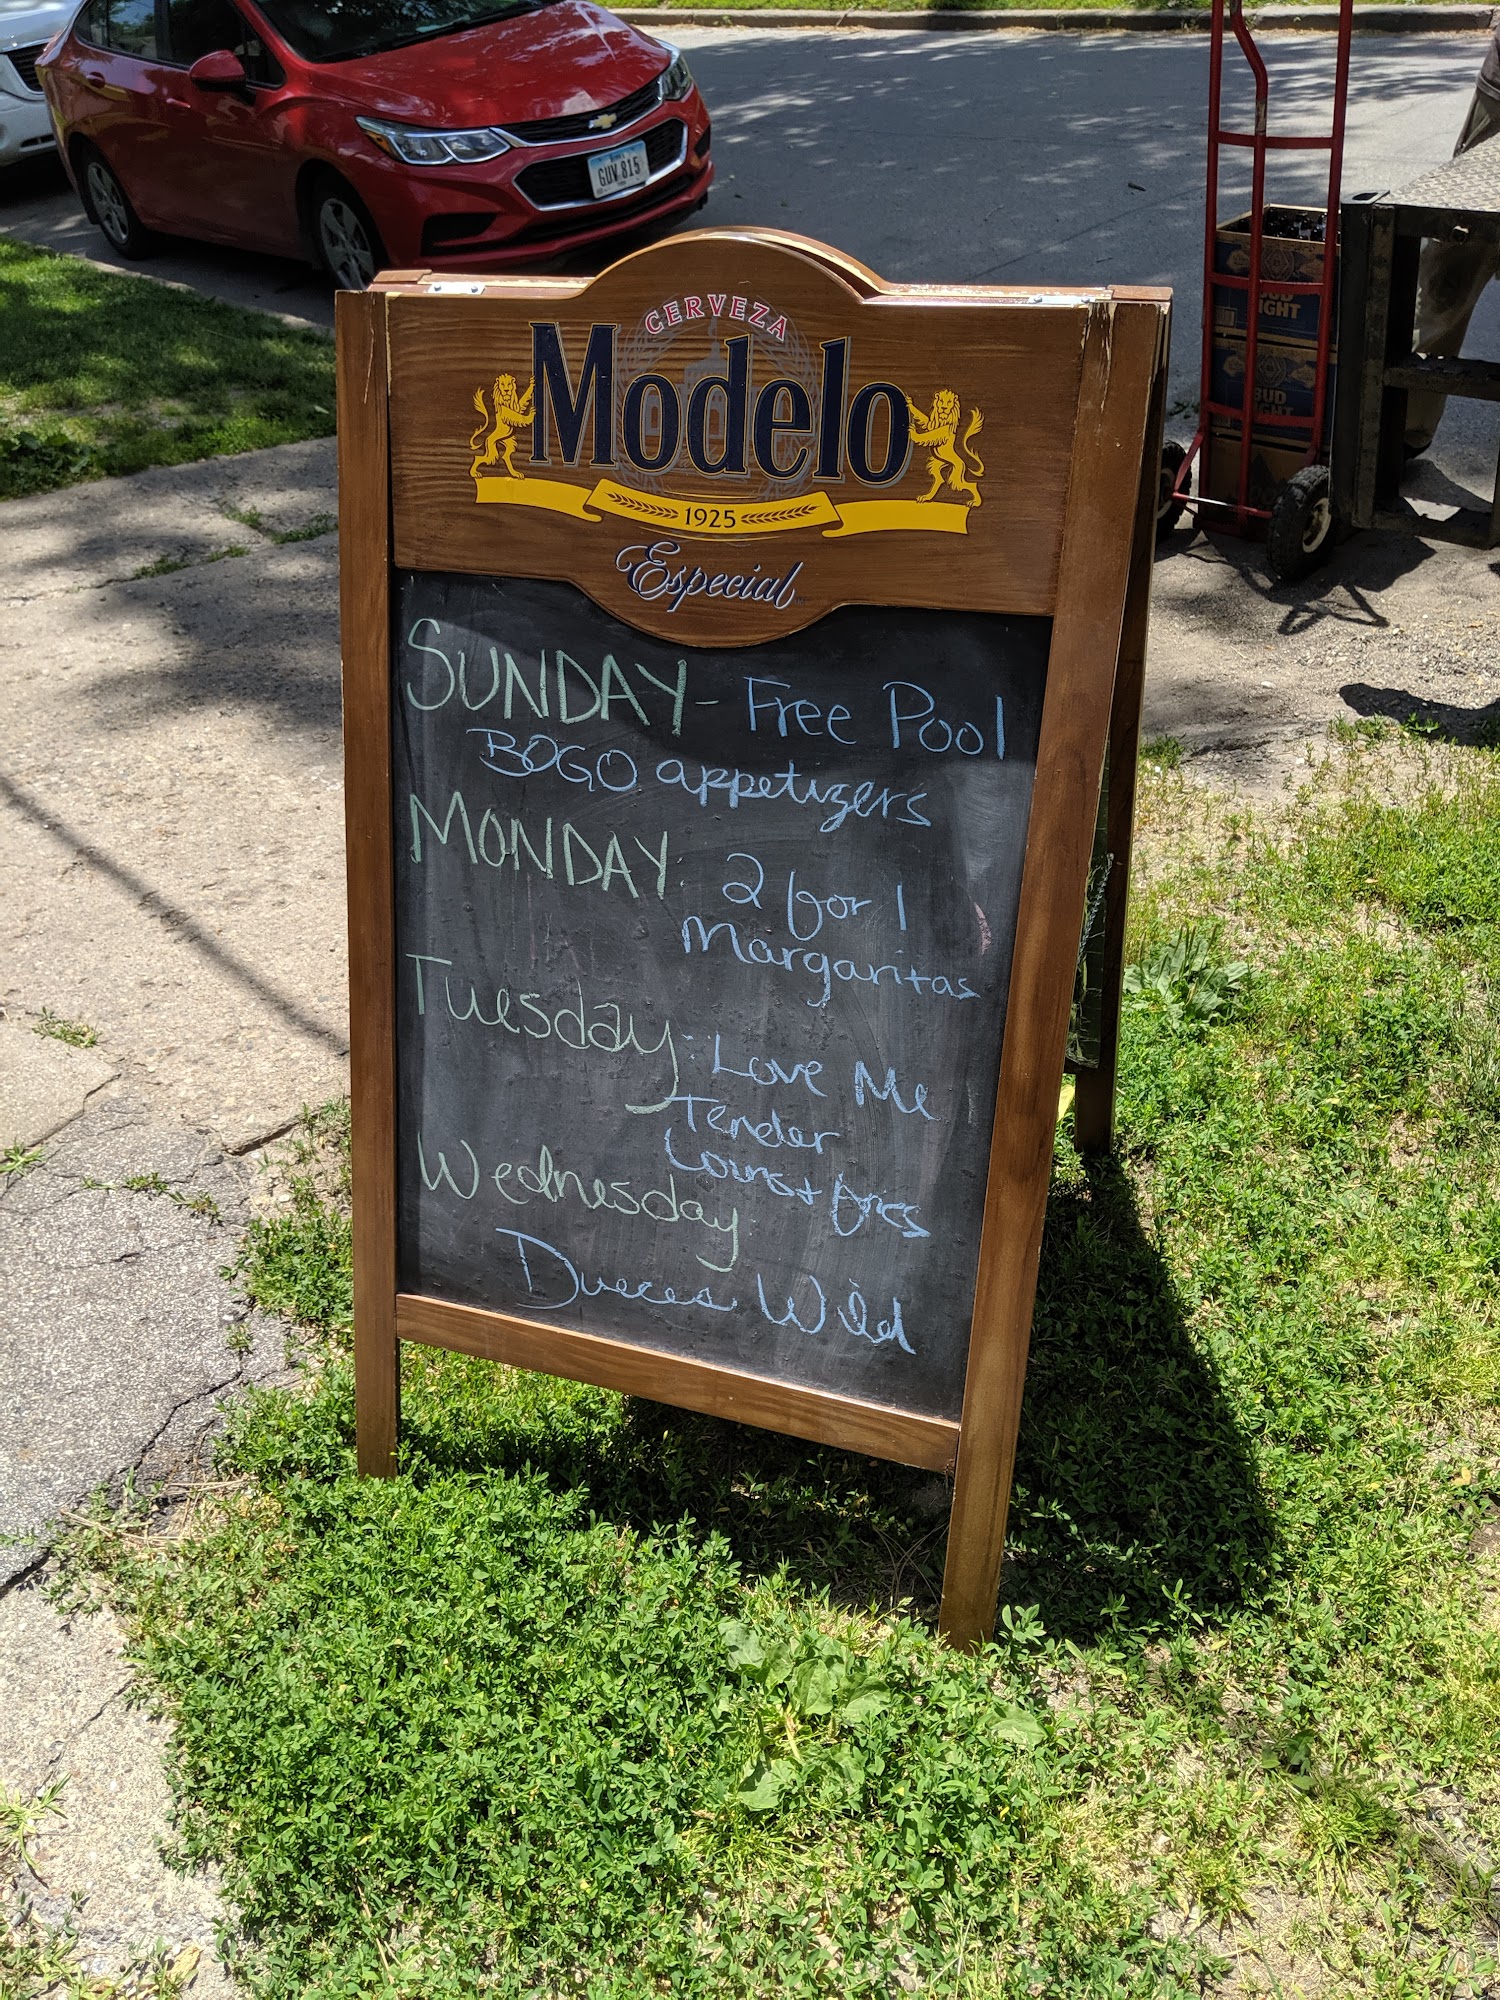 GUV 815
CERVEZA
Modelo
1925
Especial
BUD
LIGHT
BUD
LIGHT
SUNDAY - Free Pool
BOGO appetizers
MONDAY 2 for 1
Margaritas
Tuesday: Love Me
Tender
Loins + fries
Wednesday
Dueces Wild